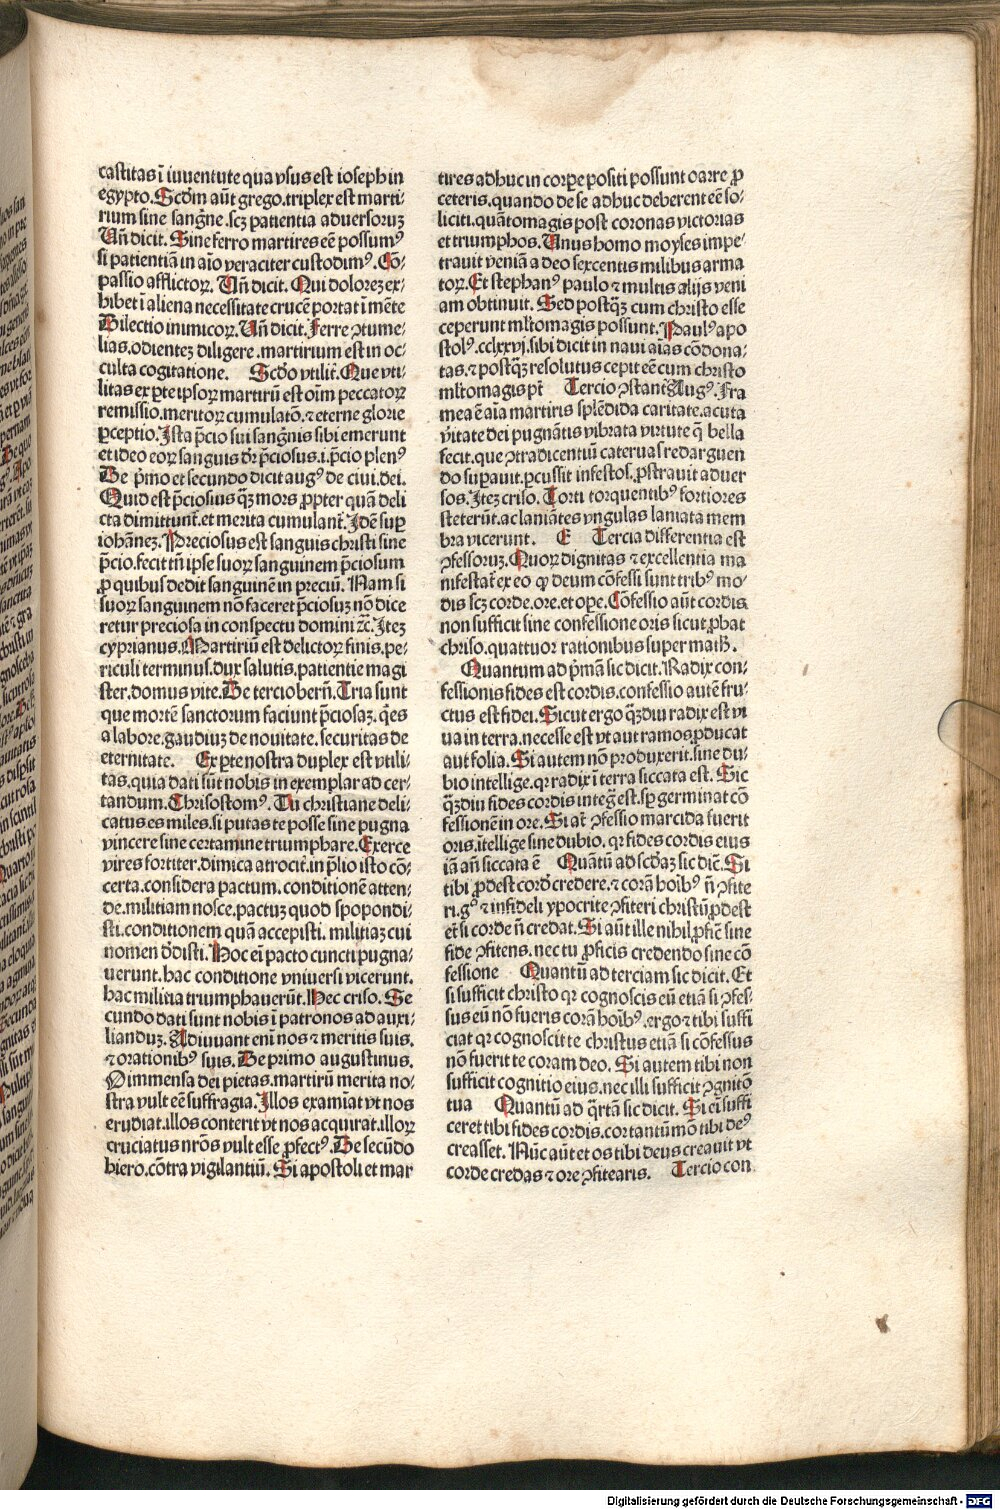 castitas ĩ iuventute qua vsus est ioseph in
egypto. Scd̄m aūt grego. triplex est marti⸗
rium sine sangn̄e. scꝫ patientia aduersoruꝫ
Vn̄ dicit. Sine ferro martires eē̄ possumꝰ
si patientiā in aīo veraciter custodimꝰ. Cō⸗
passio afflictoꝝ. Vn̄ dicit. Qui doloreꝫ ex⸗
hibet ĩ aliena necessitate crucē portat ĩ mēte
Dilectio inimicoꝝ. Vn̄ dicit. Ferre ꝯtume⸗
lias. odienteꝫ diligere. martirium est in oc⸗
culta cogitatione. Scd̄o vtilit̄. Que vti⸗
litas ex ꝑte ipsoꝝ martirū est oīm peccatoꝝ
remissio. meritoꝝ cumulatō. ⁊ eterne glorie
ꝑceptio. Ista p̄cio sui sangn̄is sibi emerunt
et ideo eoꝝ sanguis dr̄ p̄ciosus. i. p̄cio plenꝰ
De p̄mo et secundo dicit augꝰ de ciui. dei.
Quid est p̄ciosius qꝫ mors ꝓpter quā deli
cta dimittunt̄. et merita cumulant̄. Idē suꝑ
iohāneꝫ. Preciosus est sanguis christi sine
p̄cio. fecit tn̄ ipse suoꝝ sanguinem p̄ciosum
ꝓ quibus dedit sanguinē in preciū. Nam si
suoꝝ sanguinem nō faceret p̄ciosuꝫ nō dice
retur preciosa in conspectu domini ⁊c̄. Iteꝫ
cyprianus. Martiriū est delictoꝝ finis. pe⸗
riculi terminus. dux salutis. patientie magi
ster. domus vite. De tercio bern̄. Tria sunt
que mortē sanctorum faciunt p̄ciosaꝫ. qēs
a labore. gaudiuꝫ de nouitate. securitas de
eternitate. Ex ꝑte nostra duplex est vtili⸗
tas. quia dati sūt nobis in exemplar ad cer⸗
tandum. Chrisostomꝰ. Tu christiane deli⸗
catus es miles. si putas te posse sine pugna
vincere sine certamine triumphare. Exerce
vires fortiter. dimica atrocit̄. in p̄lio isto cō⸗
certa. considera pactum. conditionē atten⸗
de. militiam nosce. pactuꝫ quod spopondi⸗
sti. conditionem quā accepisti. militiaꝫ cui
nomen d̄disti. Hoc ei̅ pacto cuncti pugna⸗
uerunt. hac conditione vniuersi vicerunt.
hac militia triumphauerūt. Hec criso. Se
cundo dati sunt nobis ĩ patronos ad auxi⸗
lianduꝫ. Adiuuant enī nos ⁊ meritis suis.
⁊ orationibꝰ suis. De primo augustinus.
O immensa dei pietas. martirū merita no⸗
stra vult eē suffragia. Illos examīat vt nos
erudiat. illos conterit vt nos acquirat. illoꝝ
cruciatus nr̄os vult esse ꝓfectꝰ. De secūdo
hiero. cōtra vigilantiū. Si apostoli et mar
tires adhuc in corꝑe positi possunt oarre ꝓ
ceteris. quando de se adhuc deberent eē so⸗
liciti. quātomagis post coronas victorias
et triumphos. Unus homo moyses impe⸗
trauit veniā a deo sexcentis milibus arma
toꝝ. Et stephanꝰ paulo ⁊ multis alijs veni
am obtinuit. Sed postqꝫ cum christo esse
ceperunt ml̄tomagis possunt. Paulꝰ apo
stolꝰ. cclxxvj. sibi dicit in naui aīas cōdona⸗
tas. ⁊ postqꝫ resolutus cepit eē cum christo
ml̄tomagis pt̄ Tercio ꝯstant̄ Augꝰ. Ira
mea ē aīa martiris splēdida caritate. acuta
v̄itate dei pugnātis vibrata virtute q̄ bella
fecit. que ꝯtradicentiū cateruas redarguen
do suꝑauit. ꝑcussit infestos. ꝓstrauit aduer
sos. Iteꝫ criso. Torti torquentibꝰ fortiores
steterūt. ac laniātes vngulas laniata mem
bra vicerunt. E Tercia differentia est
ꝯfessoruꝫ. Quoꝝ dignitas ⁊ excellentia ma
nifestat̄ ex eo ꝙ deum cōfessi sunt tribꝰ mo⸗
dis scꝫ corde. ore. et oꝑe. Cōfessio aūt cordis
non sufficit sine confessione oris sicut ꝓbat
chriso. quattuor rationibus super matħ.
Quantum ad p̄mā sic dicit. Radix con⸗
fessionis fides est cordis. confessio autē fru⸗
ctus est fidei. Sicut ergo qꝫdiu radix est vi
ua in terra. necesse est vt aut ramos ꝓducat
aut folia. Si autem nō produxerit. sine du⸗
bio intellige. qr radix ĩ terra siccata est. Sic
qꝫdiu fides cordis inteḡ est. sꝑ germinat cō
fessionē in ore. Si at̄ ꝯfessio marcida fuerit
oris. ĩtellige sine dubio. qr fides cordis eius
iā an̄ siccata ē Quātū ad scd̄aꝫ sic dic̄. Si
tibi ꝓdest cord̄ credere. ⁊ corā hoībꝰ n̄ ꝯfite
ri. gͦ ⁊ infideli ypocrite ꝯfiteri christū ꝓdest
et̄ si corde n̄ credat. Si aūt ille nibil ꝓfic̄ sine
fide ꝯfitens. nec tu ꝓficis credendo sine cō
fessione Quantū ad terciam sic dicit. Et
si sufficit christo qr cognoscis eū etiā si ꝯfes⸗
sus eū nō fueris corā hoībꝰ. ergo ⁊ tibi suffi
ciat qr cognoscit te christus etiā si cōfessus
nō fuerit te coram deo. Si autem tibi non
sufficit cognitio eius. nec illi sufficit ꝯgnitō
tua Quantū ad q̄rtā sic dicit. Si ei̅ suffi
ceret tibi fides cordis. cor tantūmō tibi deꝰ
creasset. Nūc aūt et os tibi deus creauit vt
corde credas ⁊ ore ꝯfitearis. Tercio con
Digitalisierung gefördert durch die Deutsche Forschungsgemeinschaft - DFG